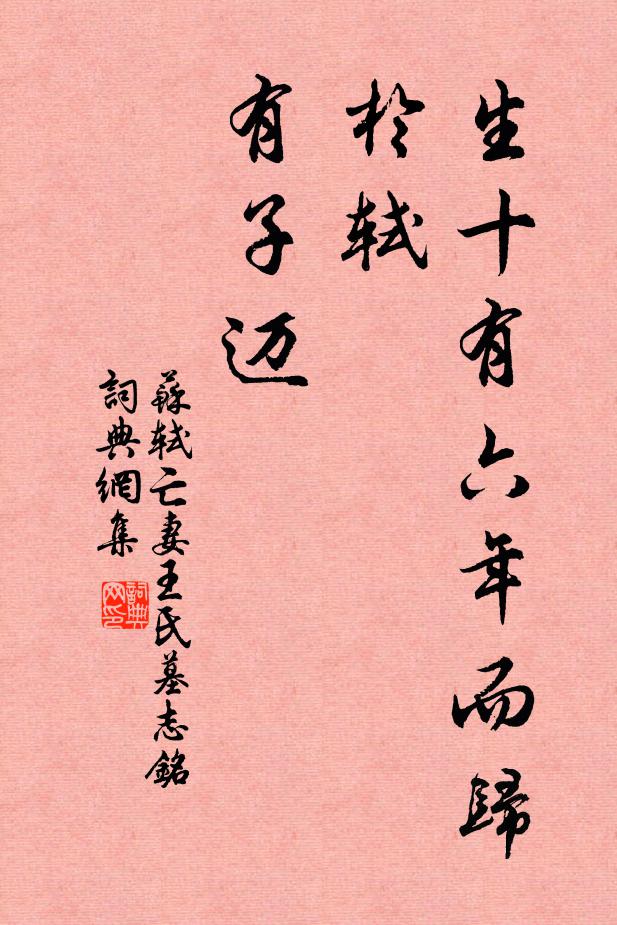 生十有六年而歸
於軾
有子迈
蘇軾亡妻王氏墓志銘
詞典網集
詞典
网印